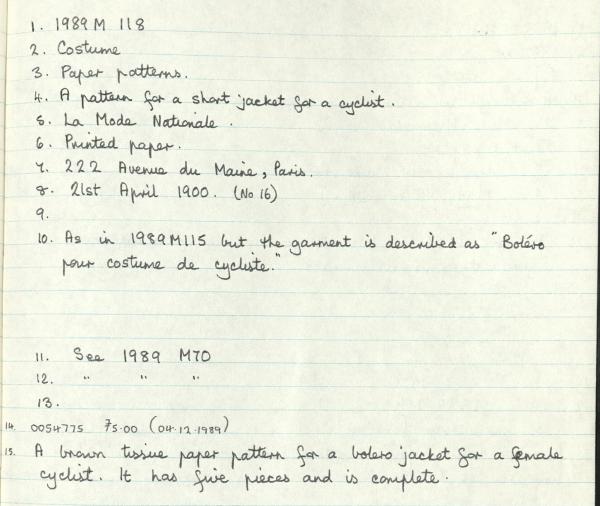 1. 1989 M 118
2. Costume
3. Paper patterns.
4. A pattern for a short jacket for a cyclist.
5. La Mode Nationale.
6. Printed paper.
7. 222 Avenue du Maine, Paris.
8. 21st April 1900. (No 16)
9.
10. As in 1989M115 but the garment is described as "Boléro
pour costume de cycliste."
11. See 1989 M70
12. " " "
13.
14. 0054775 75.00 (04.12.1989)
15. A brown tissue paper pattern for a bolero jacket for a female
cyclist. It has five pieces and is complete.